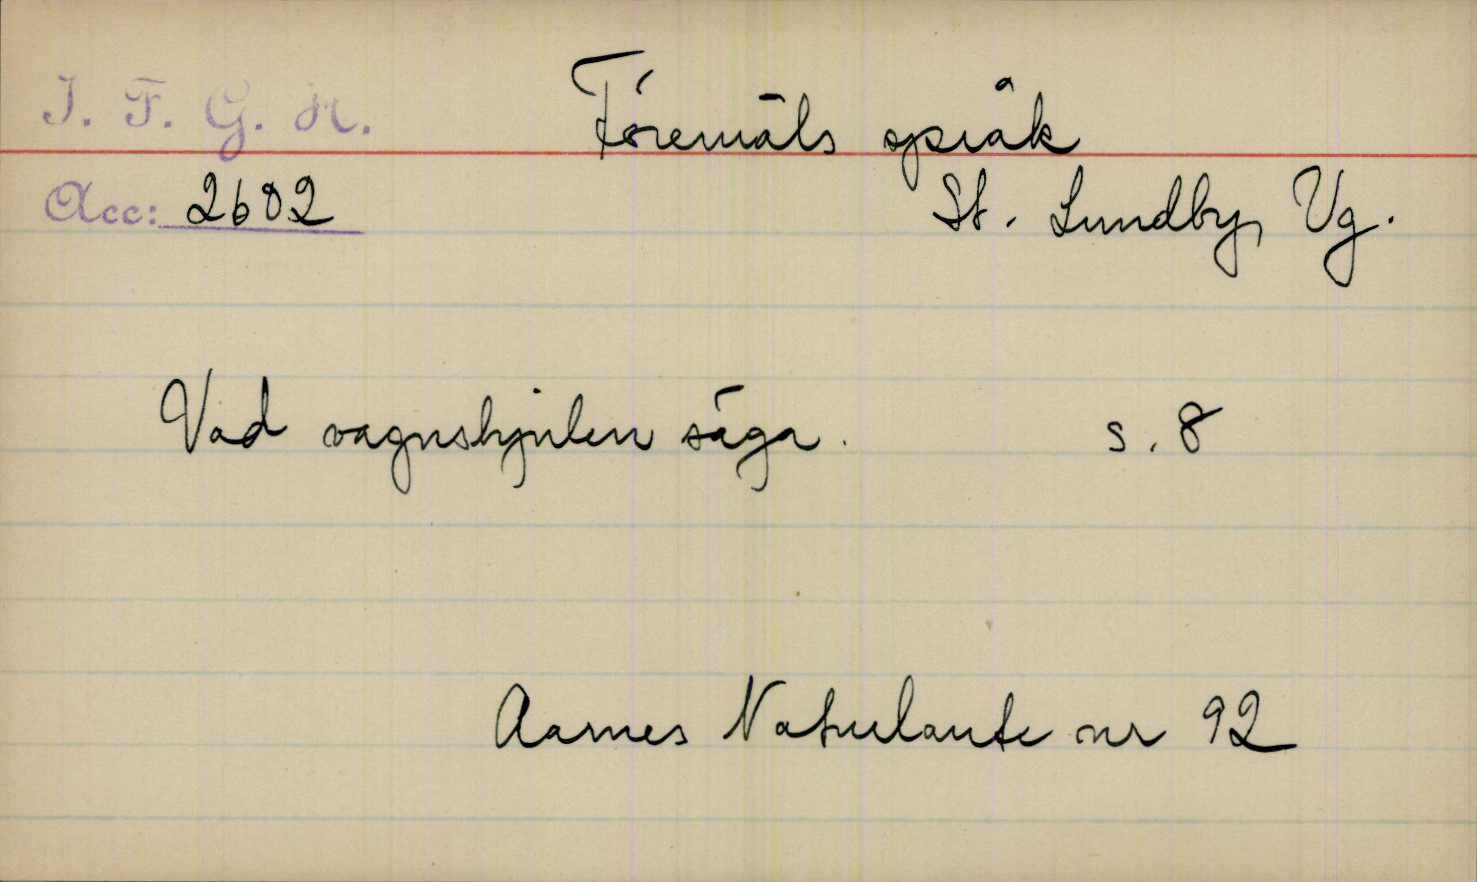 I. F. G. H. Föremåls språk
Acc: 2602 St. Lundby, Vg.
Vad vagnshjulen säga. s. 8
Aarnes Naturlaute nr 92